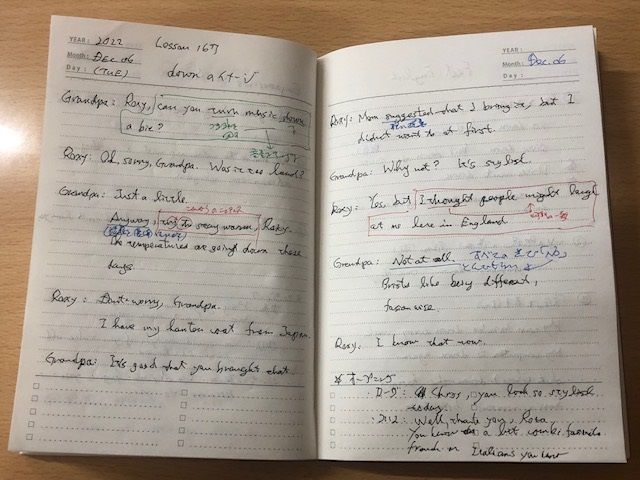 YEAR: 2022
Lesson 167
Month: DEC. 06
Day: (TUE)
down
Grandpa: Roxy, can you turn music down
a bit?
Roxy: Oh, sorry, Grandpa. Was it too loud?
Grandpa: Just a little.
Anyway, try to stay warm, Roxy.
The temperatures are going down these
days
Roxy: Don't worry, Grandpa.
I have my hanten coat from Japan.
Grandpa: It's good that you brought that.
YEAR:
Month: Dec. 06
Day:
Roxy: Mom suggested that I bring it, but I
didn't want to at first.
Grandpa: Why not? It's stylish.
Roxy: Yes, but I thought people might laugh
at me here in England
Grandpa: Not at all.
Brits like being different,
fashion wise.
Roxy: I know that now.
Chris, you look so stylish
today.
Well, thank you, Rosa.
You know a bit
Italians you know